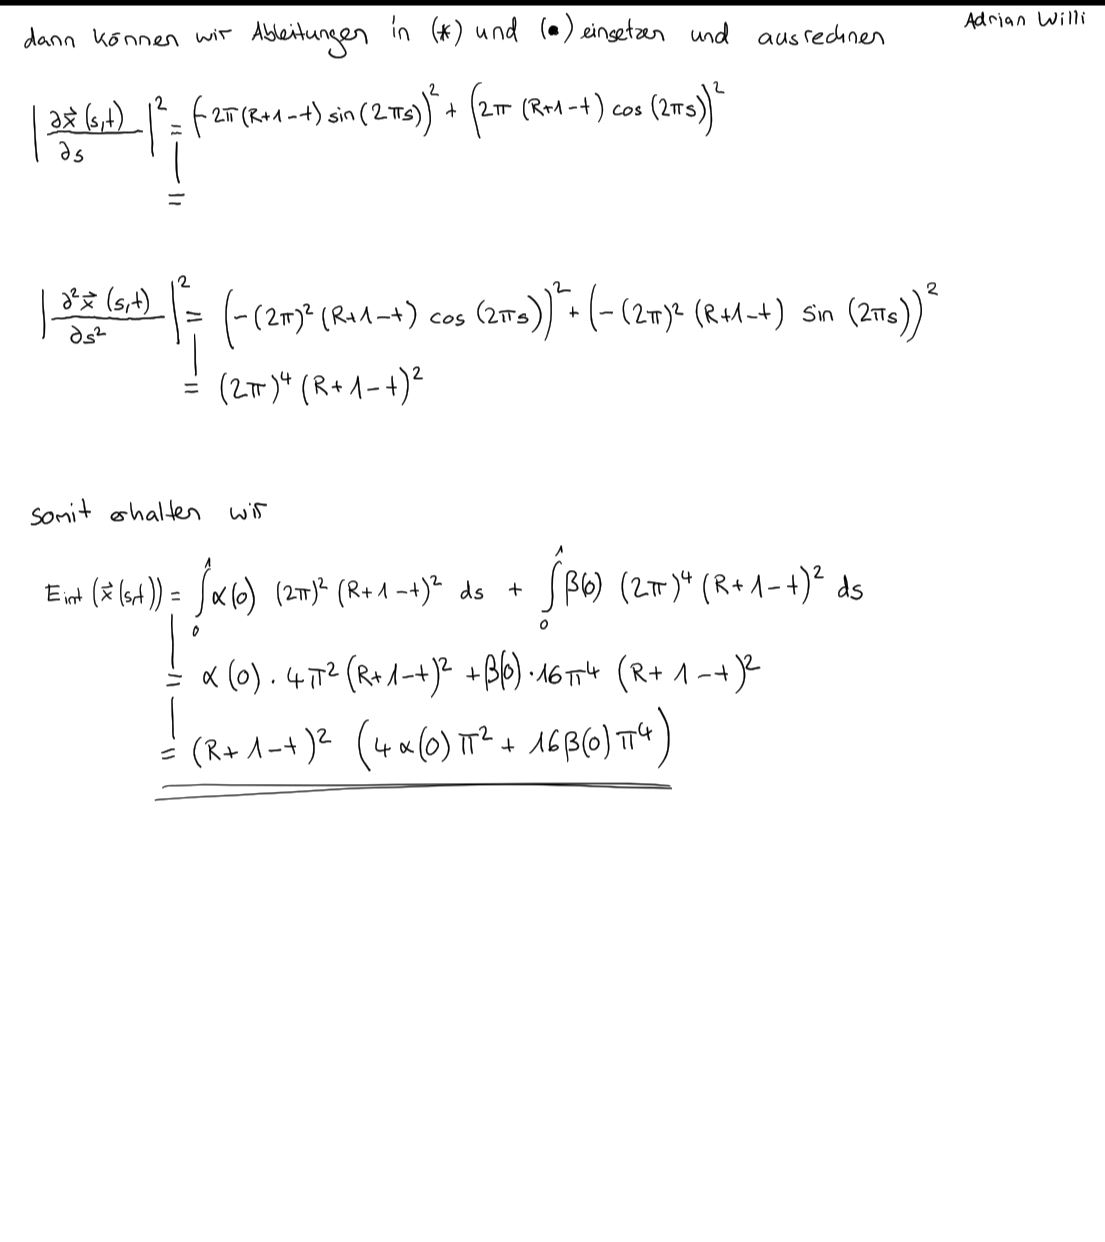 Adrian Willi
dann können wir Ableitungen in (*) und (•) einsetzen und ausrechnen
|∂x⃗(s,t)/∂s|² = (-2π(R+1-t) sin(2πs))² + (2π (R+1-t) cos (2πs))²
=
|∂²x⃗(s,t)/∂s²|² = (-(2π)² (R+1-t) cos (2πs))² + (-(2π)² (R+1-t) sin (2πs))²
= (2π)⁴ (R+1-t)²
somit erhalten wir
E_int (x⃗(s,t)) = ∫₀¹ α(0) (2π)² (R+1-t)² ds + ∫₀¹ β(0) (2π)⁴ (R+1-t)² ds
= α(0) · 4π² (R+1-t)² + β(0) · 16π⁴ (R+1-t)²
= (R+1-t)² (4α(0)π² + 16β(0)π⁴)